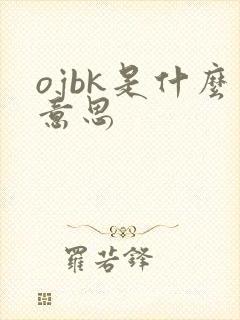 ojbk是什麼
意思
羅若鋒